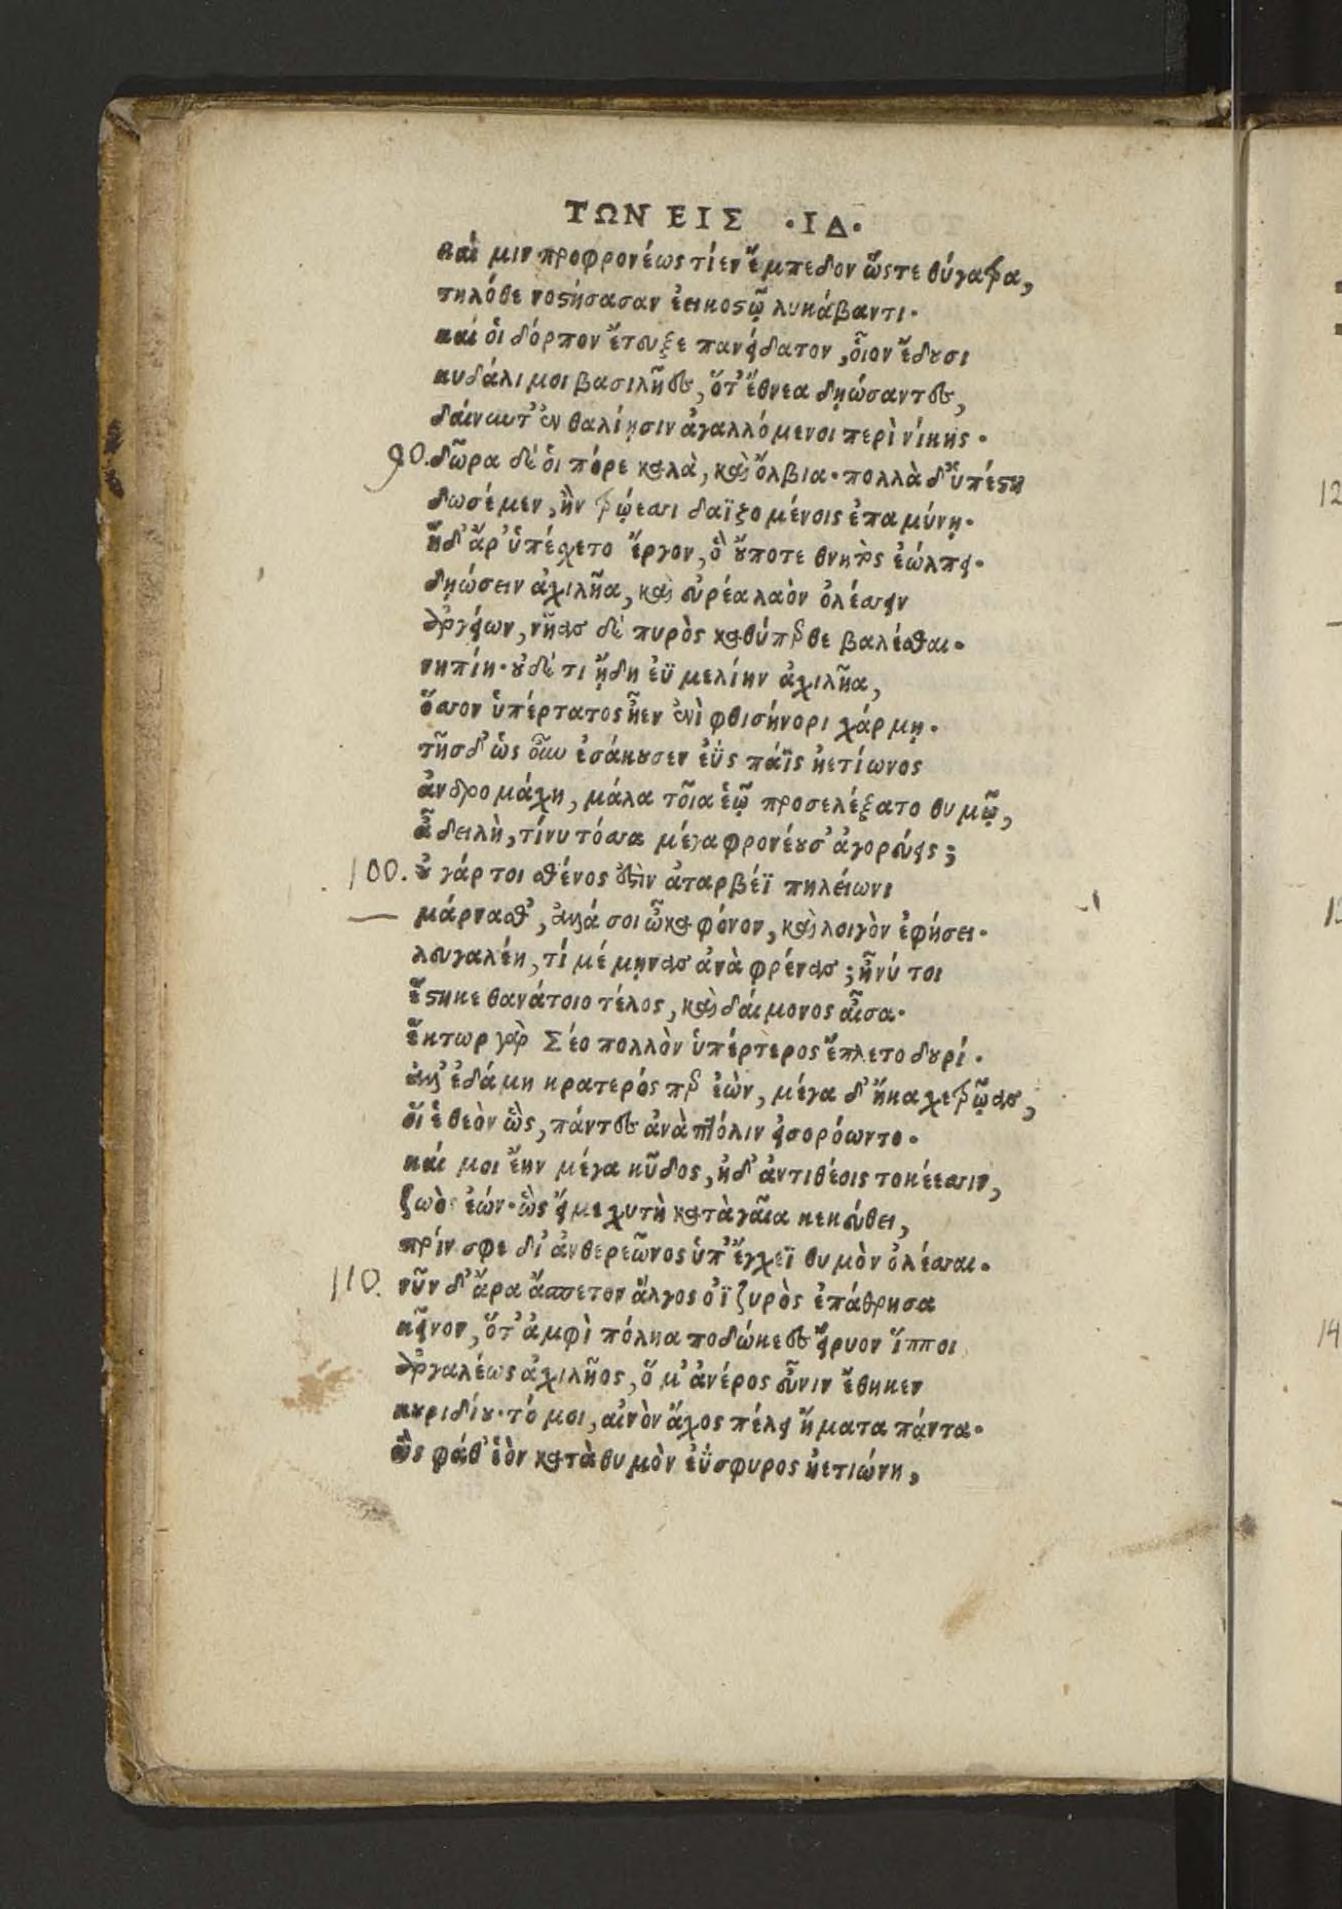 ΤΩΝ ΕΙΣ ·ΙΔ·
καί μιν προφρονέως τίεν ἔμπεδον ὥστε θύγατρα,
τηλόθε νοστήσασαν ἐεικοστῷ λυκάβαντι·
καί οἱ δόρπον ἔτευξε πανείδατον, οἷον ἔδουσι
κυδάλιμοι βασιλῆες, ὅτ' ἔθνεα δῃώσαντες,
δαίνυντ' ἐν θαλίῃσιν ἀγαλλόμενοι περὶ νίκης·
90. δῶρα δέ οἱ πόρε καλὰ, καὶ ὄλβια· πολλὰ δ' ὑπέστη
δωσέμεν, ἢν τρώεσσι δαϊζομένοις ἐπαμύνῃ·
ἣ δ' ἄρ' ὑπέσχετο ἔργον, ὃ οὔποτε θνητὸς ἐώλπει·
δῃώσειν ἀχιλῆα, καὶ εὐρέα λαὸν ὀλέσσειν
ἀργείων, νῆας δὲ πυρὸς καθύπερθε βαλέσθαι·
νηπίη· οὐδέ τι ᾔδη ἐϋμμελίην ἀχιλῆα,
ὅσσον ὑπέρτατος ἦεν ἐνὶ φθισήνορι χάρμῃ·
τῆς δ' ὡς οὖν ἐσάκουσεν ἐΰς πάϊς ἠετίωνος
ἀνδρομάχη, μάλα τοῖα ἑῷ προσελέξατο θυμῷ,
ἆ δειλὴ, τί νυ τόσσα μέγα φρονέουσ' ἀγορεύεις;
100. οὐ γάρ τοι σθένος ἐστὶν ἀταρβέϊ πηλείωνι
μάρνασθ', ἀλλά σοι ὦκα φόνον, καὶ λοιγὸν ἐφήσει·
λευγαλέη, τί μέμηνας ἀνὰ φρένας; ἦ νύ τοι
ἕστηκε θανάτοιο τέλος, καὶ δαίμονος αἶσα·
ἕκτωρ γὰρ Σέο πολλὸν ὑπέρτερος ἔπλετο δουρί·
ἀλλ' ἐδάμη κρατερός περ ἐὼν, μέγα δ' ἤκαχε τρῶας,
οἵ ἑ θεὸν ὣς, πάντες ἀνὰ πτόλιν εἰσορόωντο·
καί μοι ἔην μέγα κῦδος, ἠδ' ἀντιθέοις τοκέεσσιν,
ζωὸς ἐών· ὣς εἴ με χυτὴ κατὰ γαῖα κεκεύθει,
πρίν σφε δι' ἀνθερεῶνος ὑπ' ἔγχεϊ θυμὸν ὀλέσσαι·
110. νῦν δ' ἄρα ἄσπετον ἄλγος ὀϊζυρὸς ἐπάθρησα
κεῖνον, ὅτ' ἀμφὶ πόληα ποδώκεες εἴρυον ἵπποι
ἀργαλέως ἀχιλῆος, ὅ μ' ἀνέρος εὖνιν ἔθηκεν
κουριδίου· τό μοι, αἰνὸν ἄχος πέλει ἤματα πάντα·
ὣς φάθ' ἑὸν κατὰ θυμὸν ἐΰσφυρος ἠετιώνη,